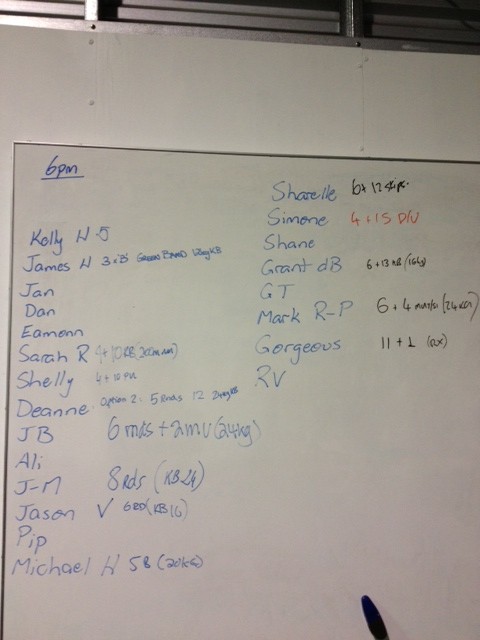 6pm
Kelly H 5
James H 3 x B Green Band 12kg KB
Jan
Dan
Eamonn
Sarah R 4+10 KB (200m run)
Shelly 4+10
Deanne option 2: 5 Rnds 12 KB
JB 6 rnds + 2 mu (24kg)
Ali
J-M 8 Rds (KB24)
Jason V 6 RD (KB16)
Pip
Michael H 5B (20kg)
Sharelle 6+12 skips
Simone 4+15 D/U
Shane
Grant dB 6+13 KB (16kg)
GT
Mark R-P 6+4 (24kg)
Gorgeous 11+1 (RX)
RV